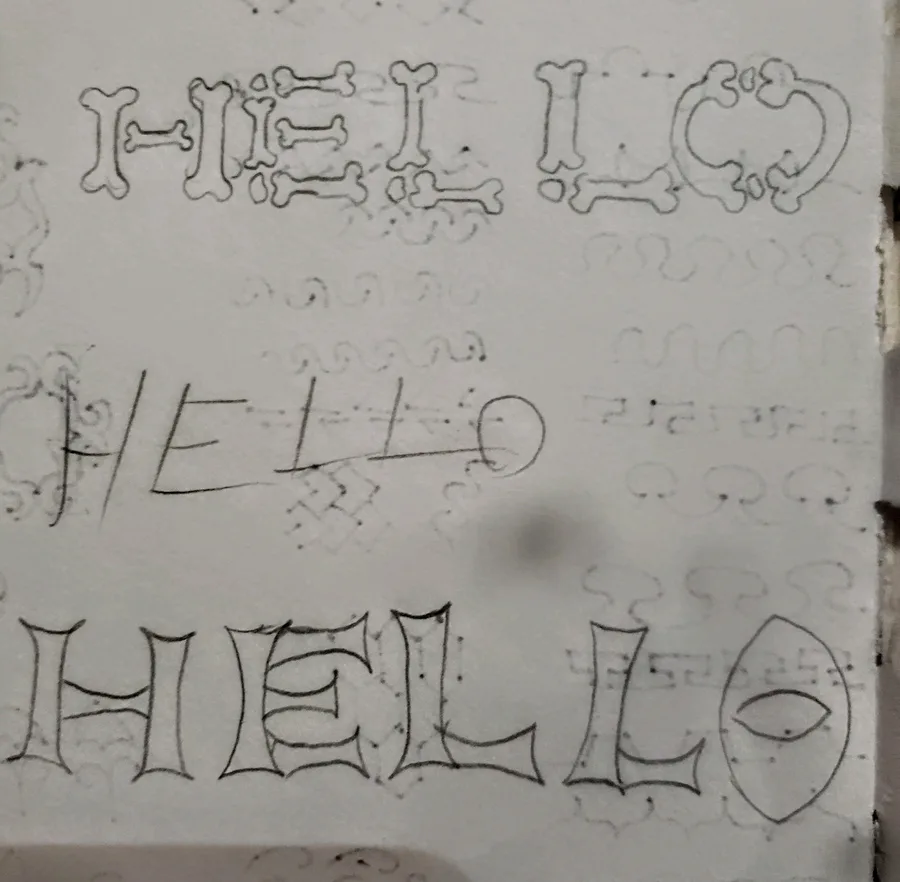 HELLO
HELLO
HELLO